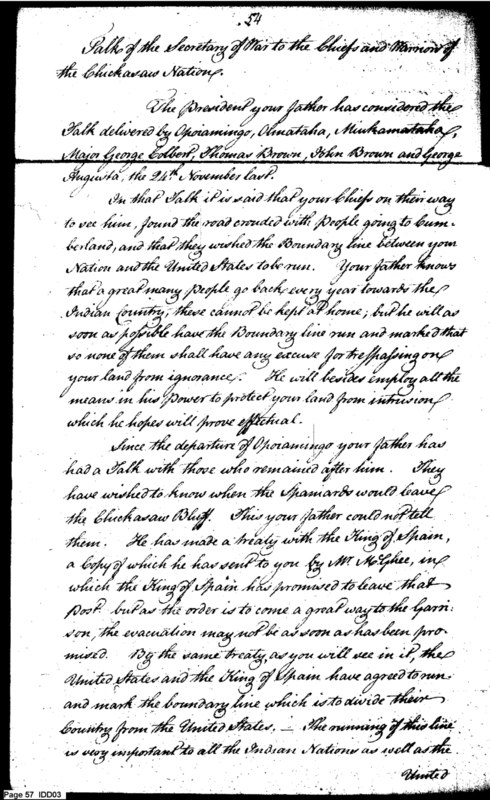 54
Talk of the Secretary of War to the Chiefs and Warriors of
the Chickasaw Nation.
The President your father has considered the
Talk delivered by Opoiamingo, Olmataha, Muckamataha,
Major George Colbert, Thomas Brown, John Brown and George
Augusta, the 24th November last.
In that Talk it is said that your Chiefs on their way
to see him, found the road crouded with People going to Cum-
berland, and that they wished the Boundary line between your
Nation and the United States to be run. Your father knows
that a great many People go back every year towards the
Indian Country, these cannot be kept at home; but he will as
soon as possible have the Boundary line run and marked that
so none of them shall have any excuse for trespassing on
your land from ignorance. He will besides employ all the
means in his Power to protect your land from intrusion
which he hopes will prove effectual.
Since the departure of Opoiamingo your father has
had a Talk with those who remained after him. They
have wished to know when the Spaniards would leave
the Chickasaw Bluff. This your father could not tell
them. He has made a triaty with the King of Spain,
a Copy of which he has sent to you by Mr. McGhee, in
which the King of Spain has promised to leave that
Post. but as the order is to come a great way to the Garri-
son, the evacuation may not be as soon as has been pro-
mised. By the same treaty, as you will see in it, the
United States and the King of Spain have agreed to run
and mark the boundary line which is to divide their
Country from the United States. — The running of this line
is very important to all the Indian Nations as well as the
United
Page 57 IDD03